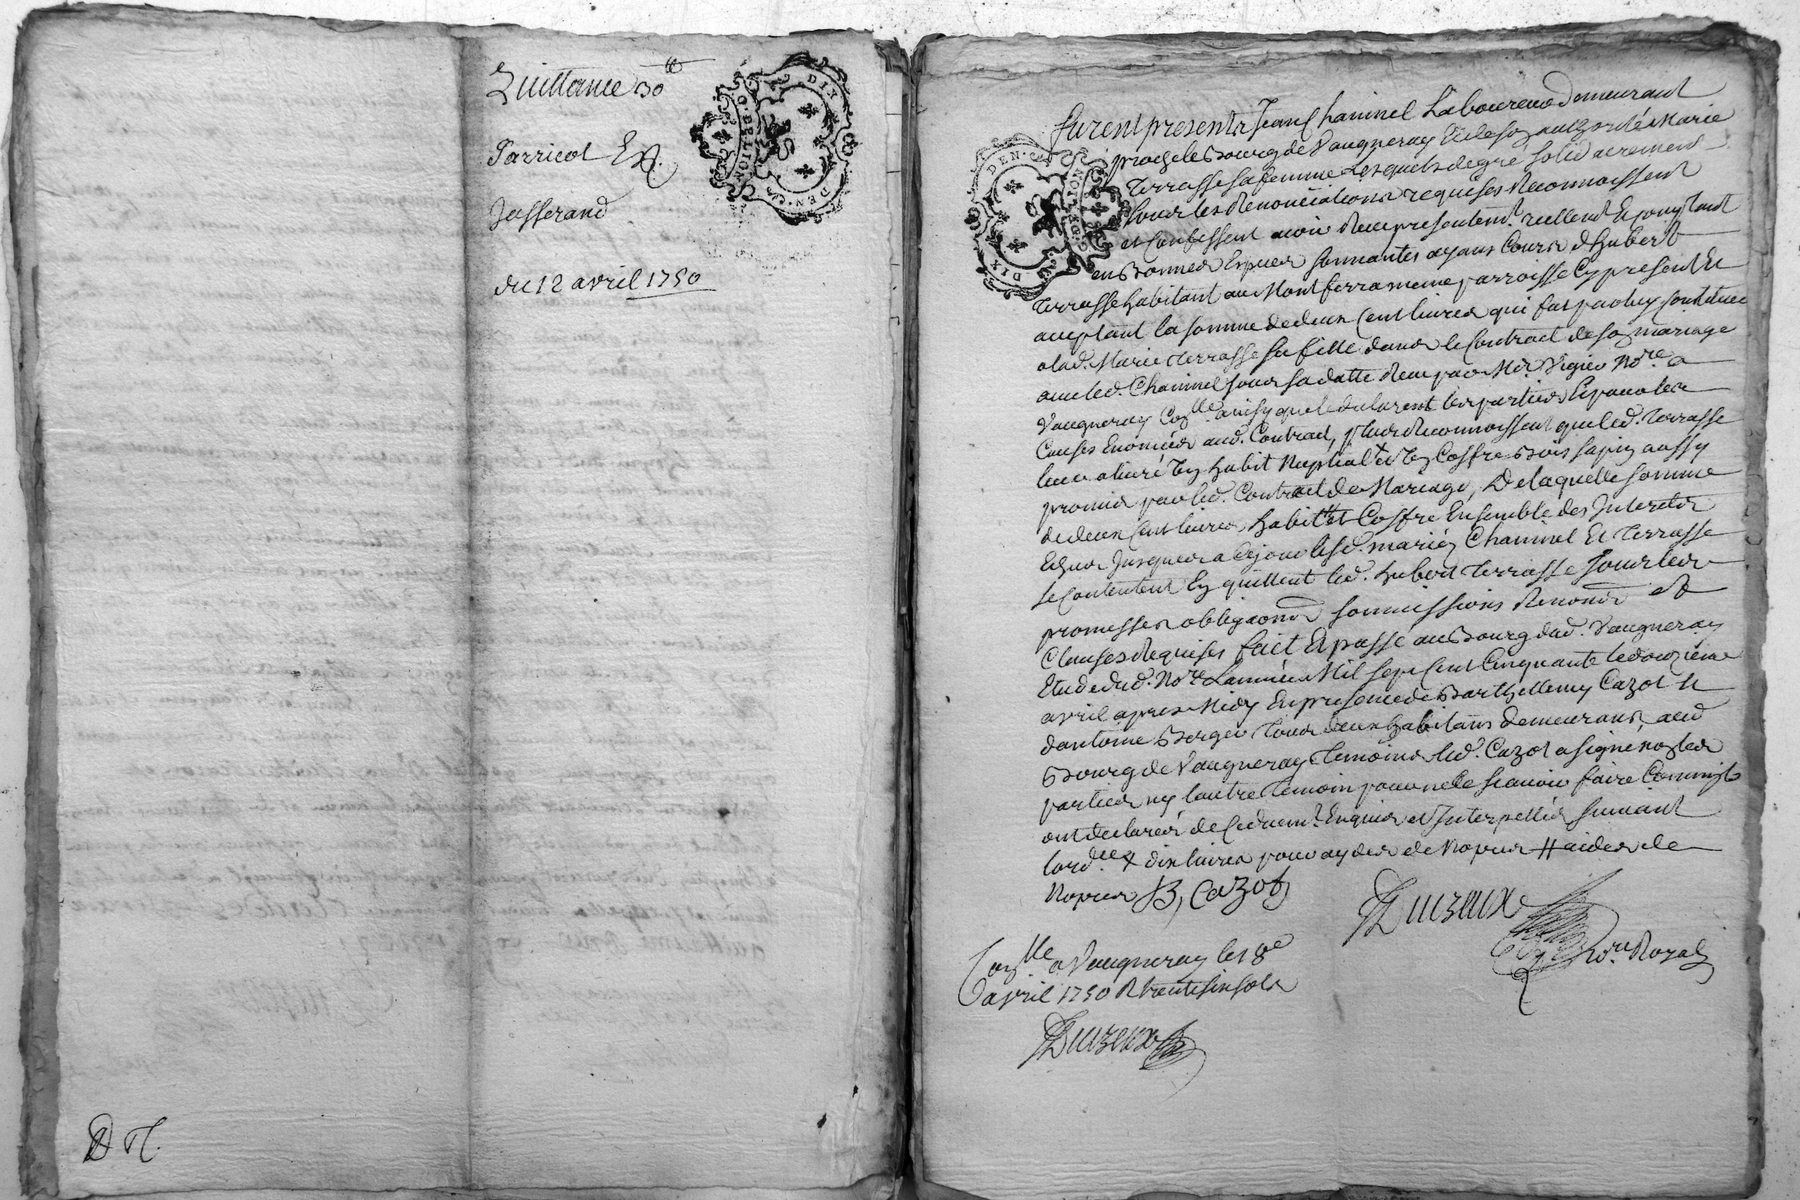 Quittance 30 tt
Parricot Et
Josserand
du 12 avril 1750
G. DE LYON
DIX DEN.
furent presents Jean Chaininel Laboureur demeurant
proche le Bourg de Vaugneray et de soy authorisée Marie
Terrasse sa femme lesquels de gré solidairement
sous les Renonciations requises Reconnoissent
et Confessent avoir Receu presentemt. reellemt Et Comptant
en Bonnes Especes sonnantes ayans Cours d'hubert
Terrasse habitant au Montferra meme parroisse Cy present Et
acceptant la somme de deux Cent livres qui fut par luy Constituée
a lad. Marie Terrasse sa fille dans le Contract de son mariage
avec led. Chaininel sous sa datte Receu par Me. Vigier No.re a
Vaugneray Con.llé ainsy que le declarent les parties Et pour les
Causes Enoncées aud. Contract, plus Reconnoissent que led. Terrasse
leur a livré Un habit Nuptial et Un Coffre Bois sapin aussy
promis par led. Contract de Mariage, De laquelle somme
de deux Cent livres habitts et Coffre Ensemble des Interests
Echus Jusques a Ce jour lesd. mariés Chaininel Et Terrasse
se Contentent En quittent led. hubert Terrasse sous les
promesses obligaons soumissions Renonons et
Clauses Requises fait Et passé au Bourg dud. Vaugneray
Etude dud. No.re L'année Mil sept Cent Cinquante le douzieme
avril apres Midy En presence de Barthellemy Cazot Et
d'antoine Berger Tous deux habitans demeurans aud
Bourg de Vaugneray Temoins led. Cazot a signé non les
parties ny l'autre Temoin pour ne le scavoir faire Comme ils
ont declarés de Ce duemt. Enquis et Interpellés suivant
l'ord.ce
Vaugneray B, Cazot
Duzeux
No.re Royal
Con.llé a Vaugneray le 18e
avril 1750 R trente six sols
Duzeux